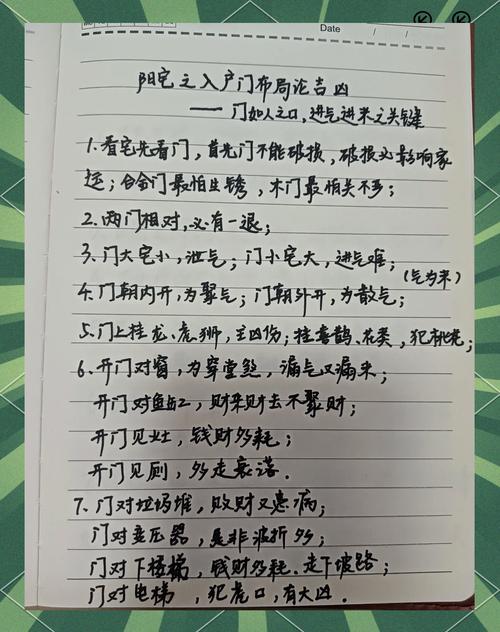 Date / /
阳宅之入户门布局论吉凶
—— 门如人之口,进气进来之关键
1.看宅先看门,首先门不能破损,破损必影响家
运;合金门最怕生锈,木门最怕关不多;
2.两门相对,必有一退;
3.门大宅小,泄气;门小宅大,进气难;
(气为来)
4.门朝内开,为聚气;门朝外开,为散气;
5.门上挂龙、虎、狮,主凶伤;挂喜鹊、花类,犯桃花;
6.开门对窗,为穿堂煞,漏气又漏来;
开门对鱼缸,财来财去不聚财;
开门见灶,钱财多耗;
开门见厕,多走衰运.
7.门对垃圾堆,败财又患病;
门对变压器,是非波折多;
门对下楼梯,钱财多耗.走下坡路;
门对电梯,犯虎口,有大凶.